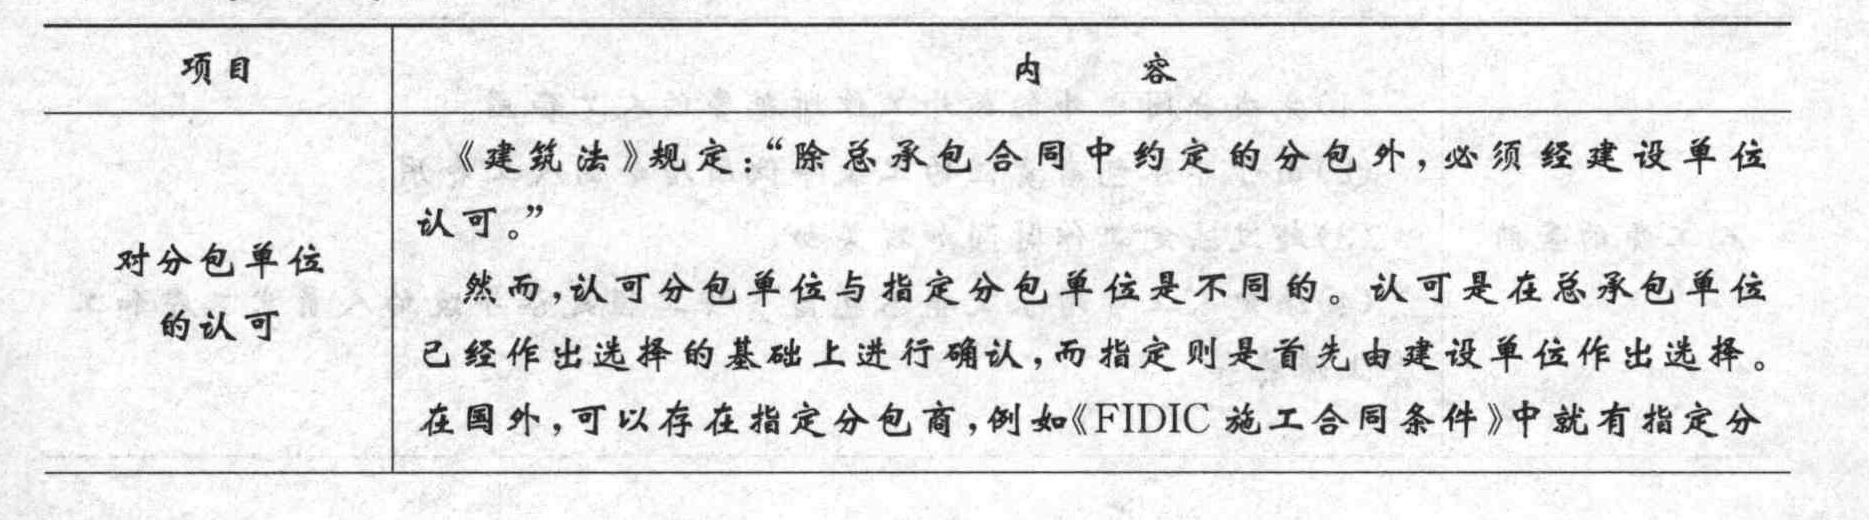 项目 内 容
《建筑法》规定：“除总承包合同中约定的分包外，必须经建设单位
认可。”
对分包单位
的认可
然而，认可分包单位与指定分包单位是不同的。认可是在总承包单位
已经作出选择的基础上进行确认，而指定则是首先由建设单位作出选择。
在国外，可以存在指定分包商，例如《FIDIC 施工合同条件》中就有指定分